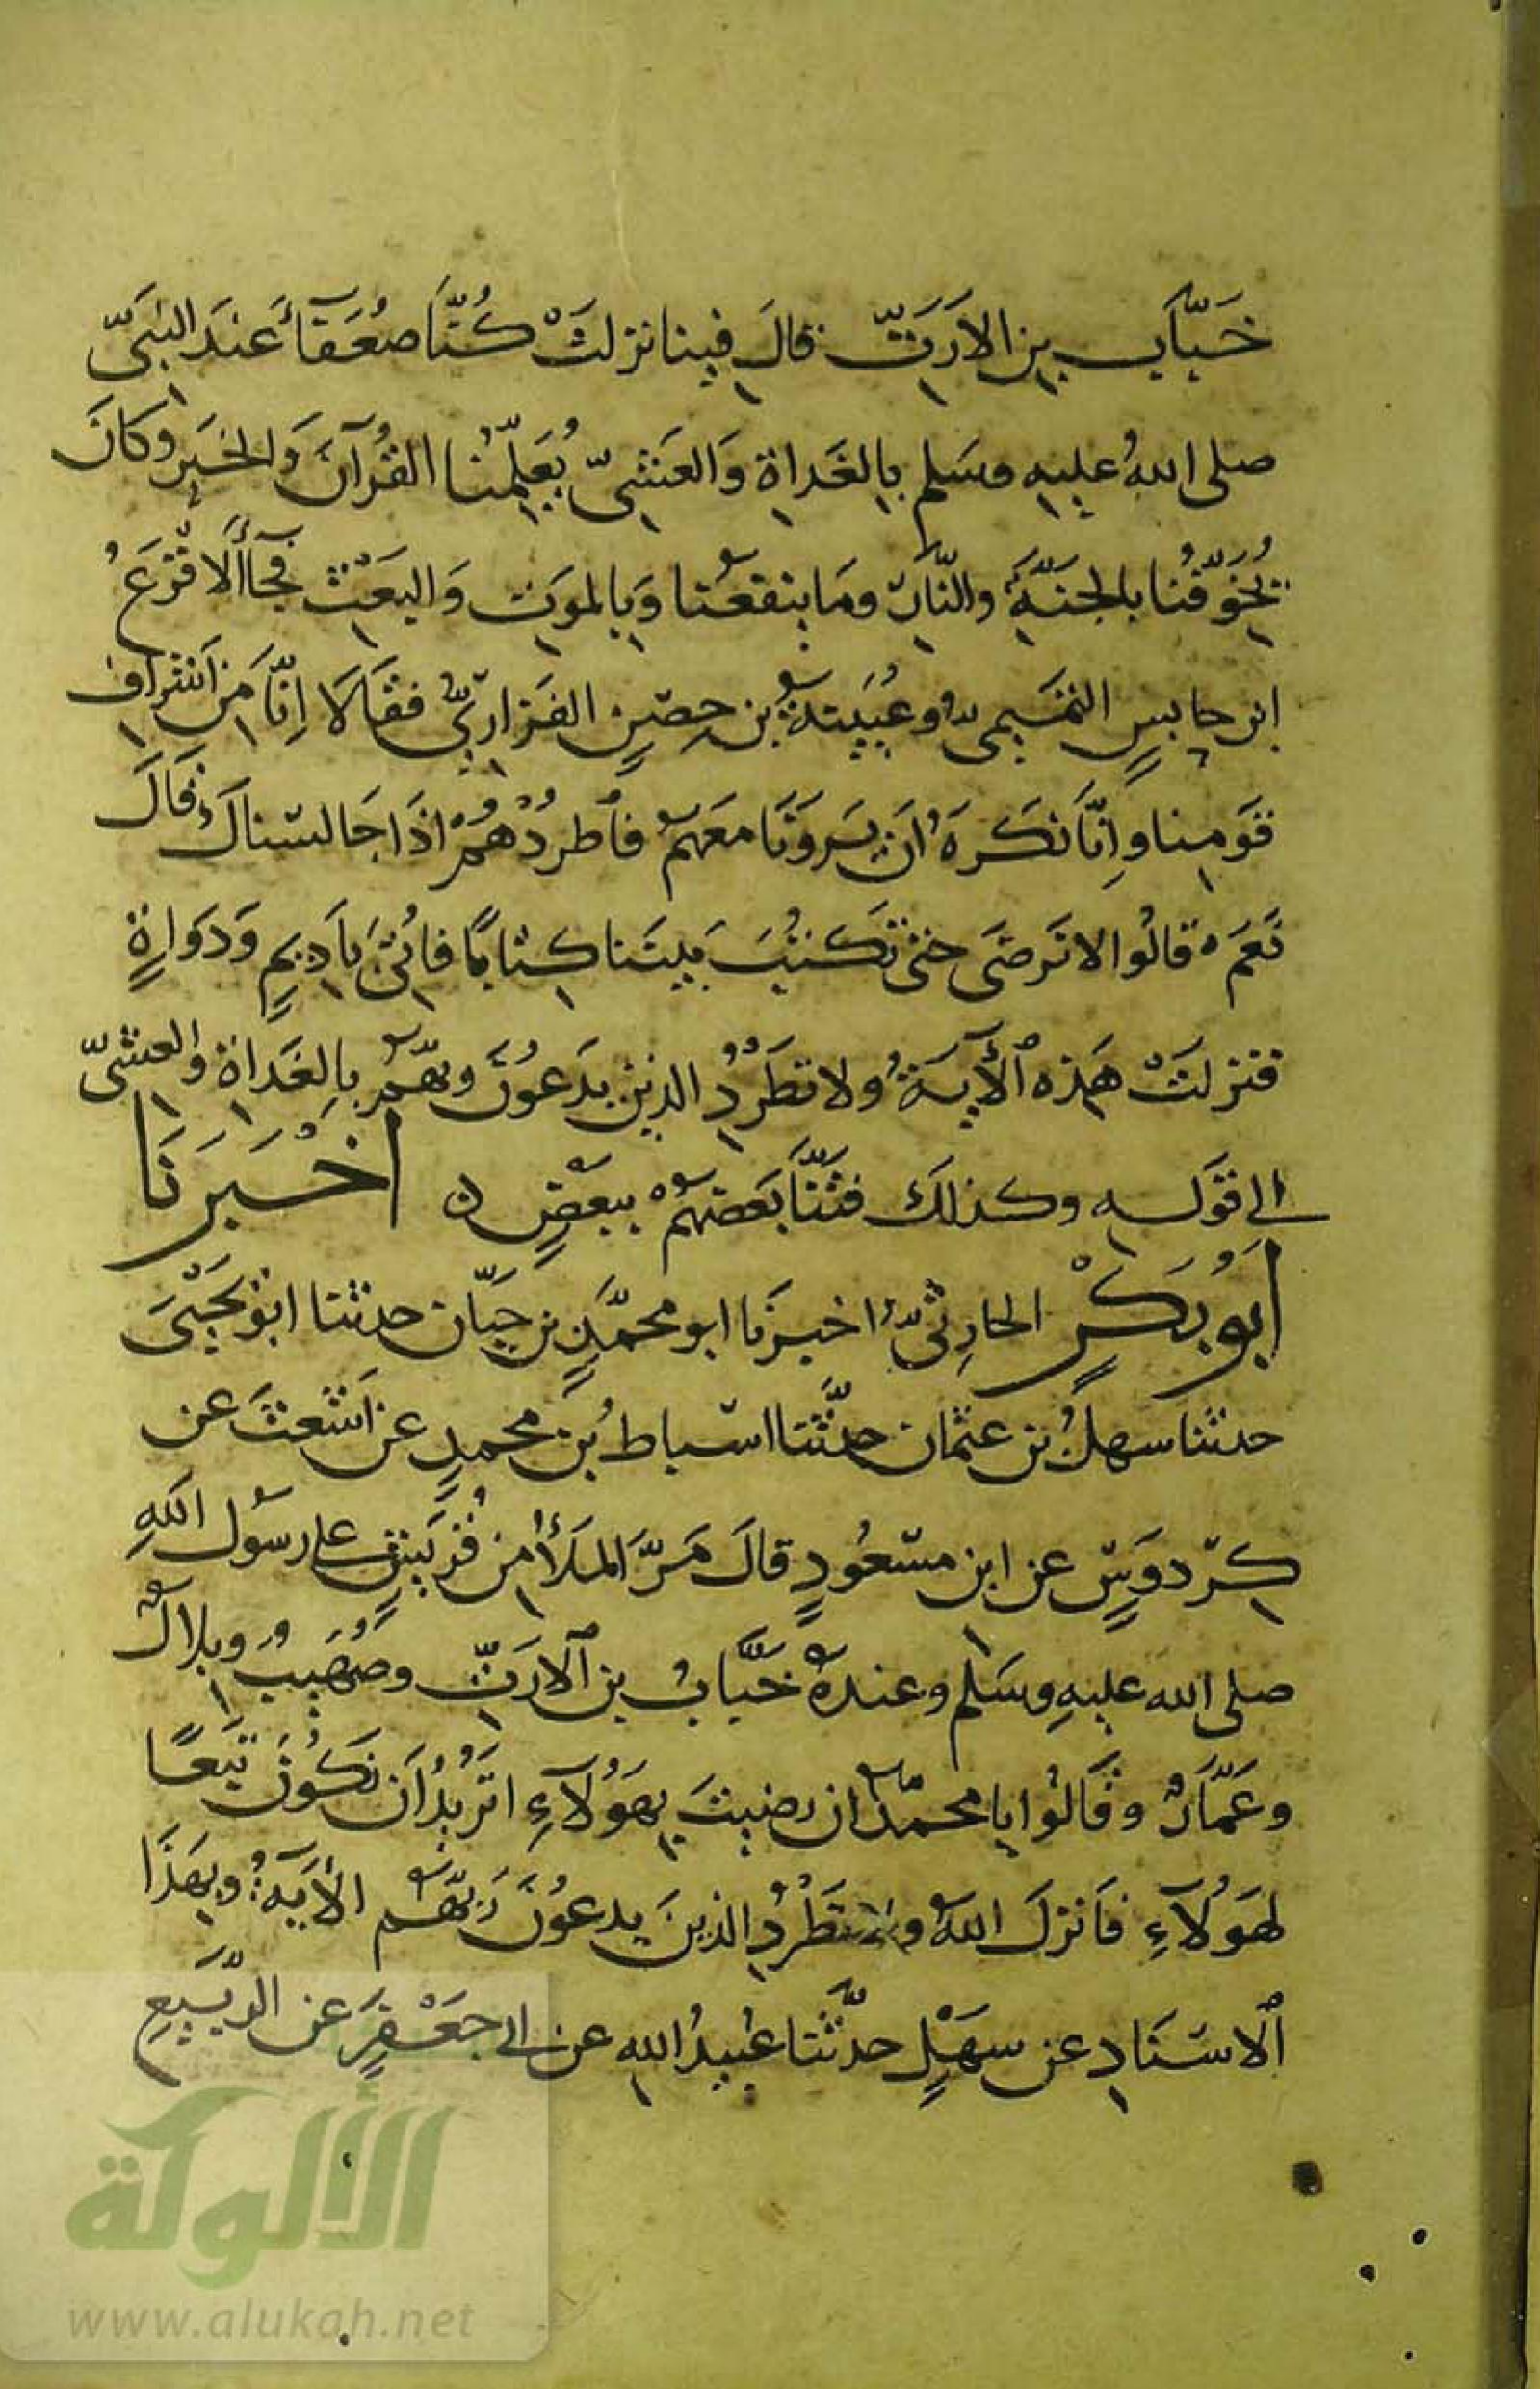 خَبَّابِ بنِ الاَرَتِّ قالَ فينا نزلتْ كُنَّا ضُعَفَآءَ عَندَ النبيّ
صلى اللهُ عليهِ وسَلم بالغَداةِ وَالعَشِيّ يُعَلِّمُنا القُرآنَ وَالخيرِ وكانَ
يُخَوِّفُنا بالجَنَّةِ والنّارِ ومَا ينفعُنا وَبالموَتِ وَالبَعْثِ فجآأَلاقْرَعُ
ابن حابسٍ التمَيمىُّ وعُيَينةُ بن حِصْنٍ الفَزاريُّ فقَالَا اِنَّا مِن اَشرافِ
قَومِنا وإنَّا نَكرَهُ اَن يَرَونَا معَهمْ فاَطردْهُمْ اذَا جَالسْناكَ قَالَ
نَعَمْ قالُوا لانَرضَى حتى تَكتُبَ بيَننا كِتابًا فاُتِىَ بأدِيمٍ وَدَواةٍ
فنزلَتْ هَذه اَلآيةُ ولا تطَردِ الذين يدَعوُنَ ربّهمْ بالغَداةِ والعشيّ
الى قَولهِ وكذلكَ فتَنَّا بَعَضهمْ ببَعْضٍ اخْبَرَنَا
ابُوبَكْرٍ الحارِثيُّ اخبرَنا ابو محمَّدٍ بن حَيّان حدثنا ابُو يَحْيىَ
حدثنا سهلُ بن عثمان حدَّثنا اسْباط بُن محمدٍ عن اَشعثَ عن
كِرْدوَسٍ عن ابن مسْعُودٍ قالَ مَرَّ المَلَأُ مِن قُرَيشٍ على رسُول اللهِ
صلى الله عليهِ وسَلم وعندهُ خَبَّابُ بن اَلارَتِّ وصُهَيبٌ وبلالٌ
وعَمَّارٌ وقَالُوا يا محمدُ ان رضيتَ بِهَؤُلآءِ اتَرُيدُ اَن نَكُونَ تَبَعًا
لهَؤُلآءِ فاَنزلَ اللهُ ولا تَطْردِ الذينَ يدعوُنَ رَبَّهُم الأيَةُ وبِهَذَا
اَلاسَنَادِ عن سهَلٍ حدّثنا عُبيدُ اللهِ عن ابي جعَفرٍ عن الرَّبيعِ
الألوكة
www.alukah.net